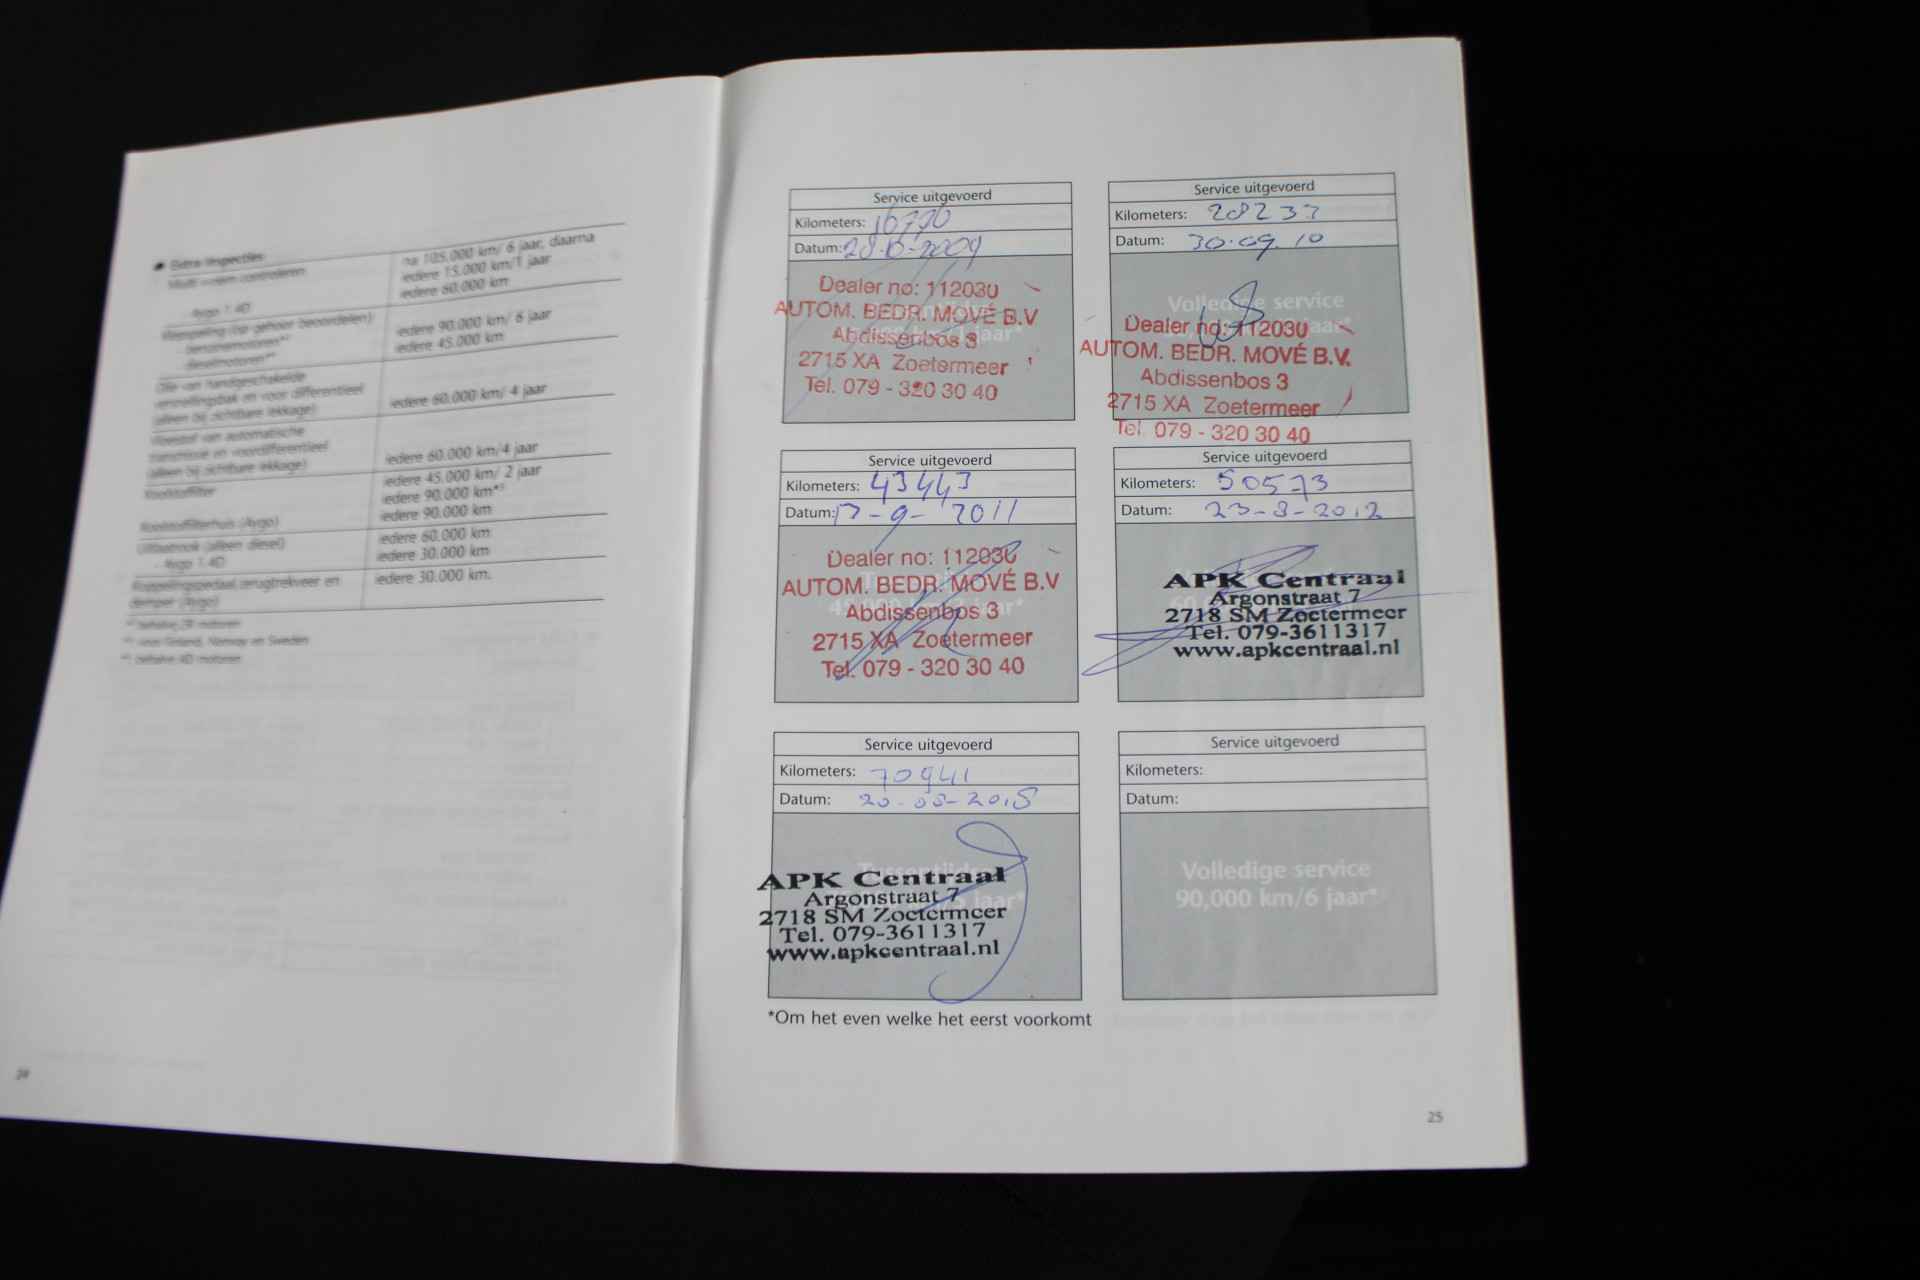 Extra inspecties
Multi v-riem controleren
na 105.000 km/ 6 jaar, daarna
iedere 15.000 km/1 jaar
- Aygo 1.4D
iedere 60.000 km
Klepspeling (op gehoor beoordelen)
- benzinemotoren
iedere 90.000 km/ 6 jaar
- dieselmotoren
iedere 45.000 km
Olie van handgeschakelde
versnellingsbak en voor differentieel
(alleen bij zichtbare lekkage)
iedere 60.000 km/ 4 jaar
Vloeistof van automatische
transmissie en voordifferentieel
(alleen bij zichtbare lekkage)
iedere 60.000 km/4 jaar
Koolstoffilter
iedere 45.000 km/ 2 jaar
iedere 90.000 km*
Koolstoffilterhuis (Aygo)
iedere 90.000 km
Uitlaatrook (alleen diesel)
iedere 60.000 km
- Aygo 1.4D
iedere 30.000 km
Koppelingspedaal terugtrekveer en
demper (Aygo)
iedere 30.000 km.
voor Finland, Norway en Sweden
behalve AD motoren
24
Service uitgevoerd
Kilometers: 16770
Datum:
Dealer no: 112030
AUTOM. BEDR. MOVÉ B.V
Abdissenbos 3
2715 XA Zoetermeer
Tel. 079 - 320 30 40
Service uitgevoerd
Kilometers: 28237
Datum: 30.09.10
Volledige service
Dealer no: 112030
AUTOM. BEDR. MOVÉ B.V.
Abdissenbos 3
2715 XA Zoetermeer
Tel. 079 - 320 30 40
Service uitgevoerd
Kilometers: 43443
Datum: 17-9-2011
Dealer no: 112030
AUTOM. BEDR. MOVÉ B.V
Abdissenbos 3
2715 XA Zoetermeer
Tel. 079 - 320 30 40
Service uitgevoerd
Kilometers: 50573
Datum: 23-8-2012
APK Centraal
Argonstraat 7
2718 SM Zoetermeer
Tel. 079-3611317
www.apkcentraal.nl
Service uitgevoerd
Kilometers: 70941
Datum: 20-08-2015
APK Centraal
Argonstraat 7
2718 SM Zoetermeer
Tel. 079-3611317
www.apkcentraal.nl
Service uitgevoerd
Kilometers:
Datum:
Volledige service
90,000 km/6 jaar*
*Om het even welke het eerst voorkomt
25